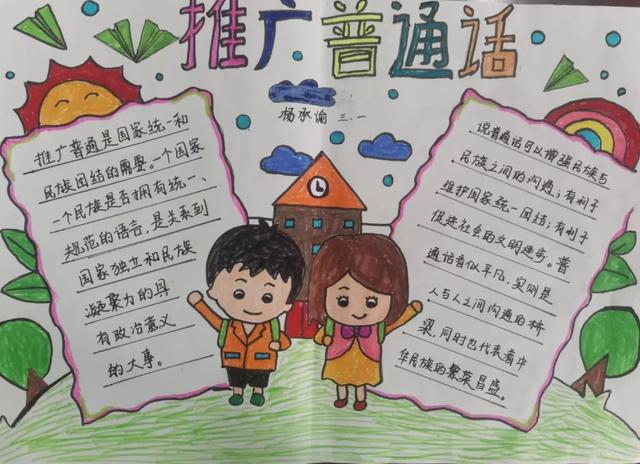 推广普通话
杨承谕 三、一
推广普通是国家统一和
民族团结的需要。一个国家
一个民族是否拥有统一、
规范的语言，是关系到
国家独立和民族
凝聚力的具
有政治意义
的大事。
说普通话可以增强民族与
民族之间的沟通；有利于
维护国家统一团结；有利于
促进社会的文明进步。普
通话音似平凡，实则是
人与人之间沟通的桥
梁，同时也代表着中
华民族的繁荣昌盛。